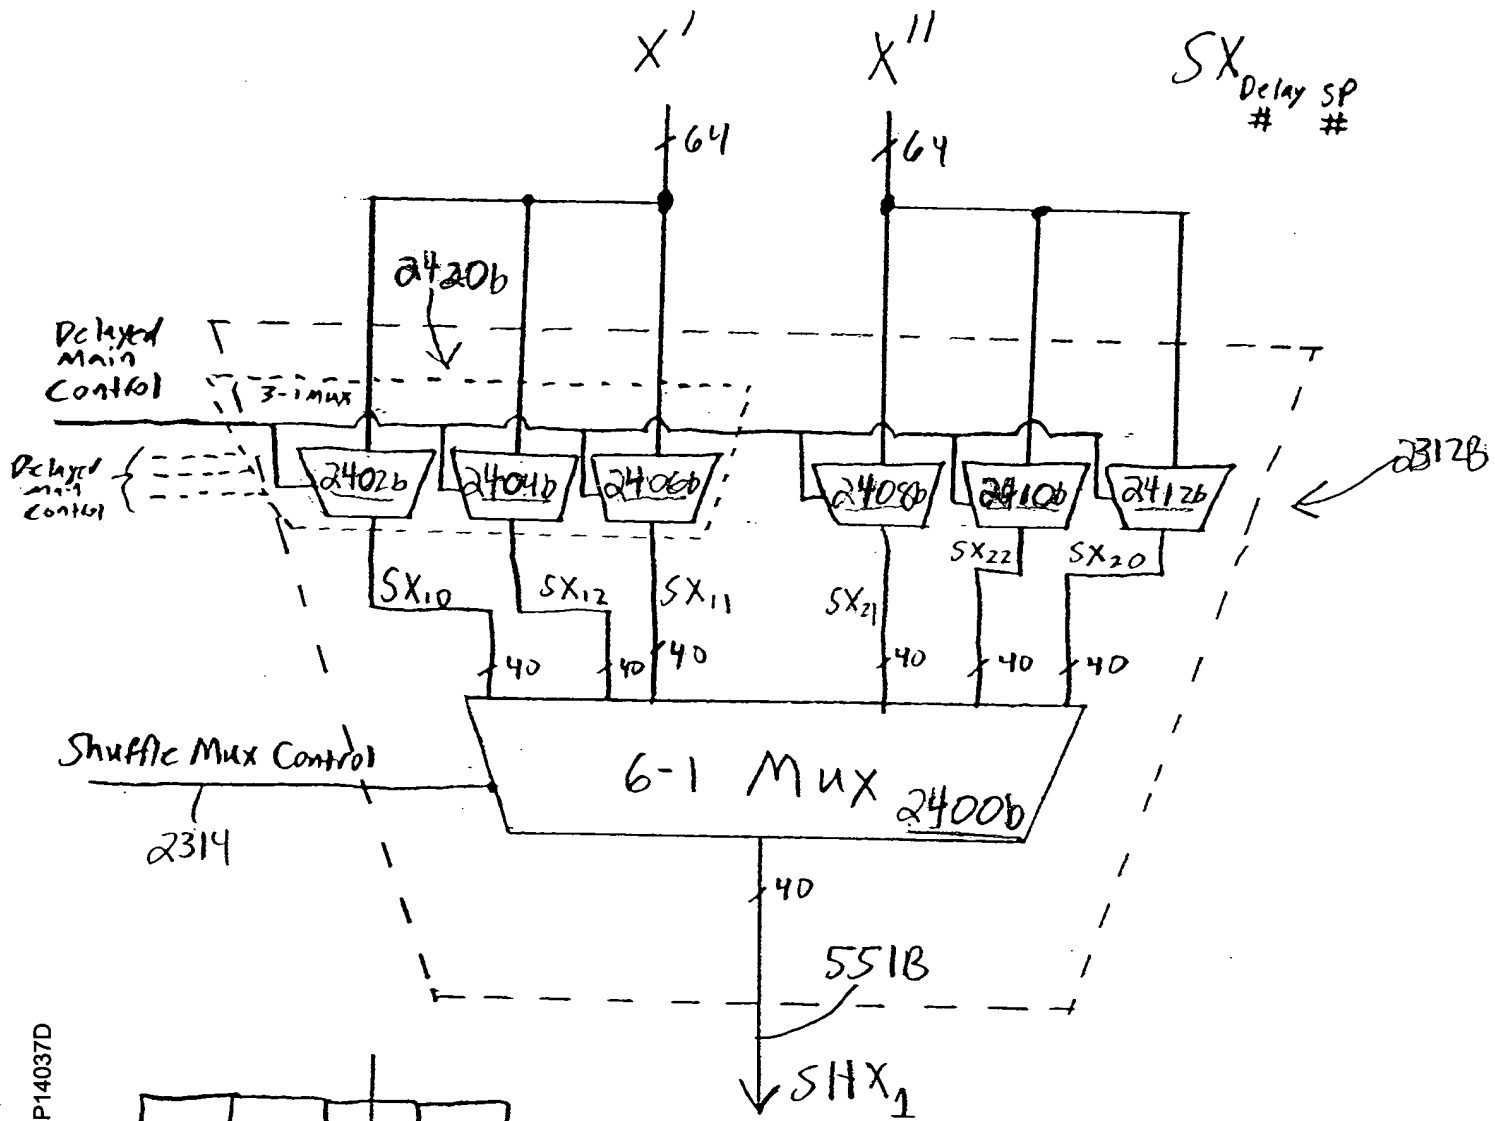 X'
X''
SX Delay SP
# #
64
64
2420b
Delayed
Main
Control
3-1 Mux
Delayed
Main
Control
2402b
2404b
2406b
2408b
2410b
2412b
2312B
SX10
SX12
SX11
SX21
SX22
SX20
40
40
40
40
40
40
Shuffle Mux Control
2314
6-1 Mux
2400b
40
551B
SHX1
P14037D